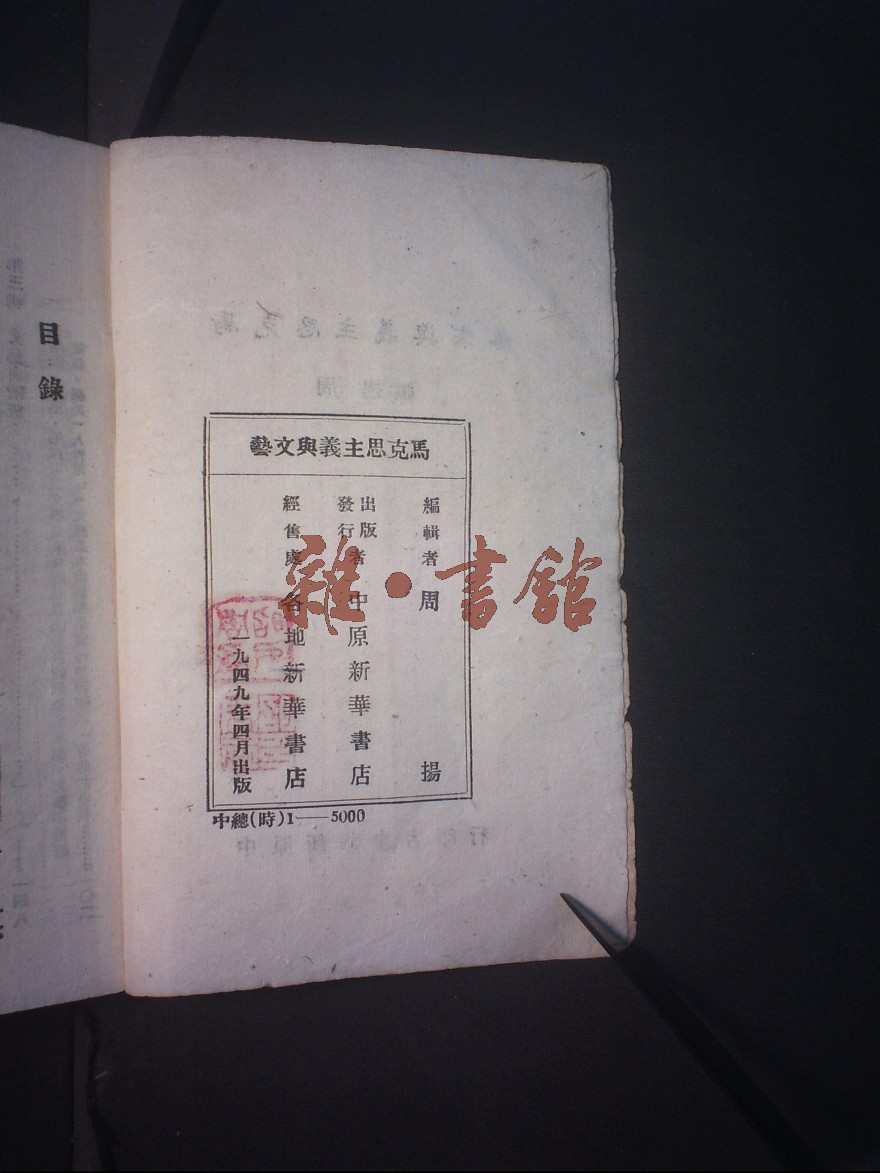 馬克思主義與文藝
編輯者 周揚
出版
發行者 中原新華書店
經售處 各地新華書店
一九四九年四月出版
中總(時)1——5000
目錄
雜·書館